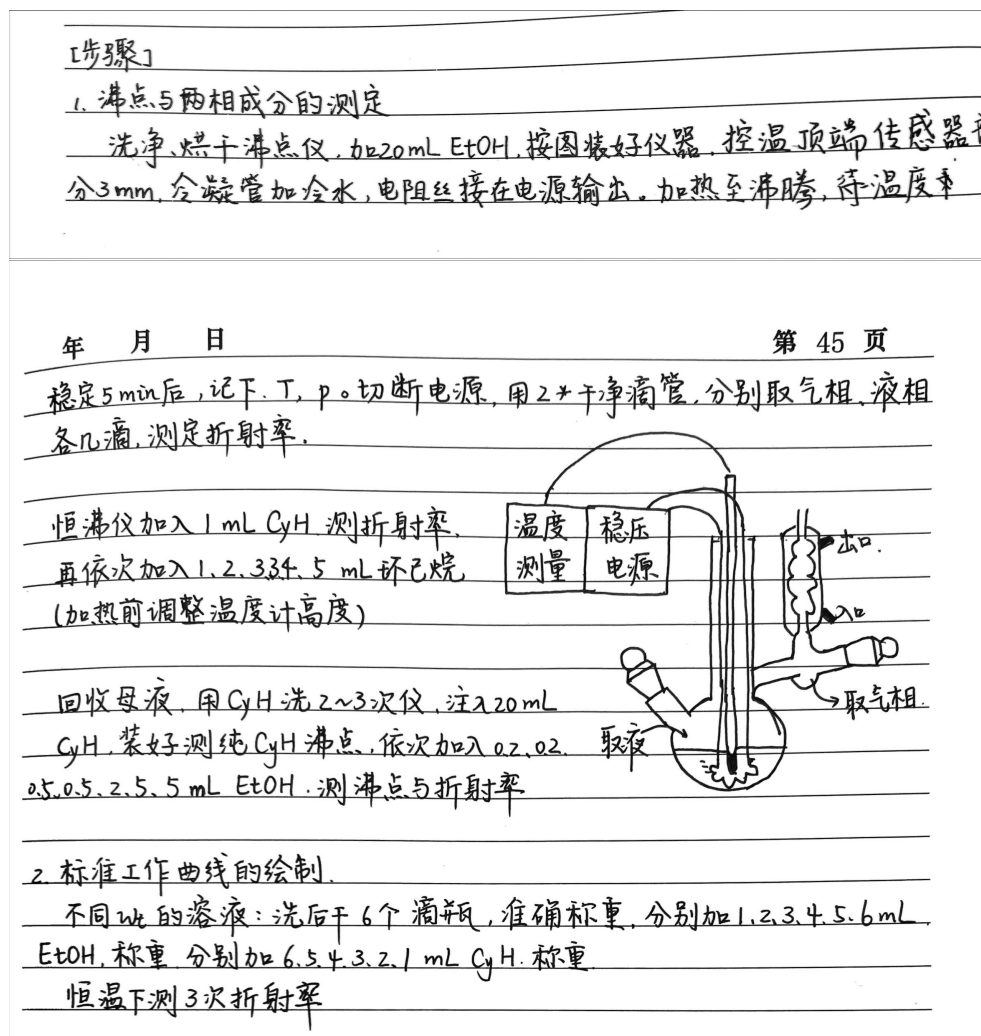 [步骤]
1. 沸点与两相成分的测定
洗净、烘干沸点仪, 加20mL EtOH, 按图装好仪器, 控温顶端传感器
分3mm, 冷凝管加冷水, 电阻丝接在电源输出。加热至沸腾, 待温度
年 月 日 第 45 页
稳定5min后, 记下T, p。切断电源, 用2支干净滴管, 分别取气相、液相
各几滴, 测定折射率.
恒沸仪加入 1 mL CyH 测折射率,
再依次加入1、2、3、3、4、5 mL 环己烷
(加热前调整温度计高度)
温度
测量
稳压
电源
出口.
入口
回收母液, 用CyH洗2~3次仪, 注入20mL
CyH, 装好测纯CyH沸点, 依次加入0.2、0.2、
0.5、0.5、2、5、5 mL EtOH. 测沸点与折射率
取液
取气相.
2. 标准工作曲线的绘制.
不同wt的溶液: 洗后干6个滴瓶, 准确称重, 分别加1、2、3、4、5、6mL
EtOH, 称重 分别加6、5、4、3、2、1 mL CyH. 称重
恒温下测3次折射率